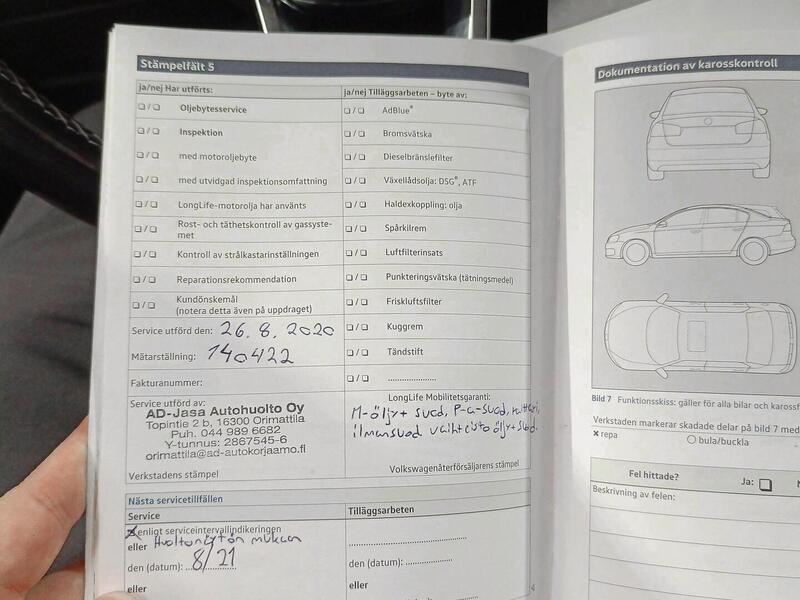 Stämpelfält 5
ja/nej Har utförts:
❑ / ❑ Oljebytesservice
❑ / ❑ Inspektion
❑ / ❑ med motoroljebyte
❑ / ❑ med utvidgad inspektionsomfattning
❑ / ❑ LongLife-motorolja har använts
❑ / ❑ Rost- och täthetskontroll av gassyste-
met
❑ / ❑ Kontroll av strålkastarinställningen
❑ / ❑ Reparationsrekommendation
❑ / ❑ Kundönskemål
(notera detta även på uppdraget)
Service utförd den: 26.8.2020
Mätarställning: 140422
Fakturanummer:
Service utförd av:
AD-Jasa Autohuolto Oy
Topintie 2 b, 16300 Orimattila
Puh. 044 989 6682
Y-tunnus: 2867545-6
orimattila@ad-autokorjaamo.fi
Verkstadens stämpel
ja/nej Tilläggsarbeten – byte av:
❑ / ❑ AdBlue®
❑ / ❑ Bromsvätska
❑ / ❑ Dieselbränslefilter
❑ / ❑ Växellådsolja: DSG®, ATF
❑ / ❑ Haldexkoppling: olja
❑ / ❑ Spårkilrem
❑ / ❑ Luftfilterinsats
❑ / ❑ Punkteringsvätska (tätningsmedel)
❑ / ❑ Friskluftsfilter
❑ / ❑ Kuggrem
❑ / ❑ Tändstift
❑ / ❑ ......................
LongLife Mobilitetsgaranti:
M-öljy+ suod, P-a-suod,
ilmansuod vaihteistoöljy+suod.
Volkswagenåterförsäljarens stämpel
Nästa servicetillfällen
Service
enligt serviceintervallindikeringen
eller Huoltonäytön mukaan
den (datum): 8/21
eller
Tilläggsarbeten
den (datum):
eller
4
Dokumentation av karosskontroll
Bild 7 Funktionsskiss: gäller för alla bilar och karossf
Verkstaden markerar skadade delar på bild 7 med
x repa ○ bula/buckla
Fel hittade? Ja: ❑ N
Beskrivning av felen: